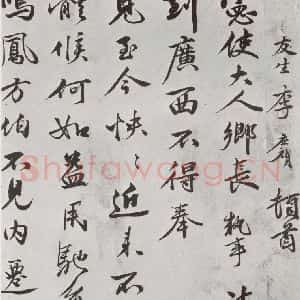 友生李 頓首
憲使大人鄉長執事
到廣西不得奉
見至今怏〻近來不
體候何如益用馳
鳴鳳方伯不見內遷
Shufawang.CN